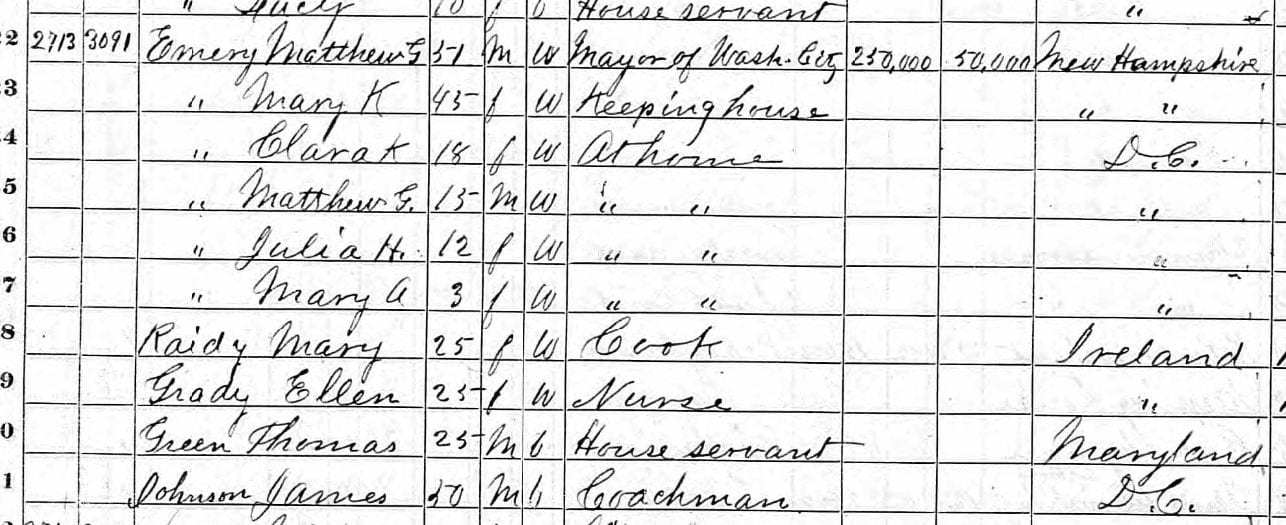 " Lucy 10 f b House servant "
2 2713 3091 Emery Matthew G 51 M W Mayor of Wash. City 250,000 50,000 New Hampshire
3 " Mary K 45 f W Keeping house " "
4 " Clara K 18 f W At home D.C.
5 " Matthew G. 15 M W " " "
6 " Julia H. 12 f W " " "
7 " Mary A 3 f W " " "
8 Raidy Mary 25 f W Cook Ireland
9 Grady Ellen 25 f W Nurse "
0 Green Thomas 25 M b House servant Maryland
1 Johnson James 50 M b Coachman D.C.